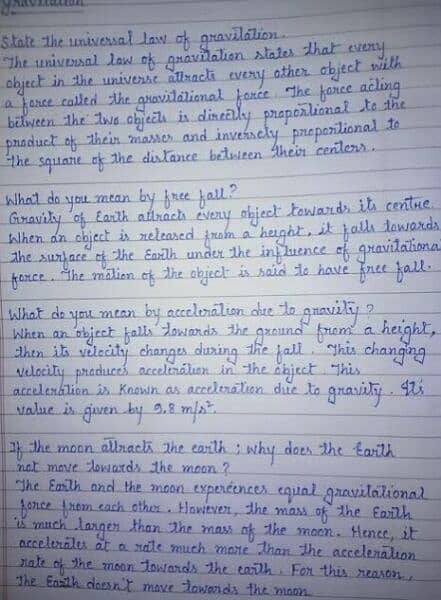 Gravitation
State the universal law of gravitation.
The universal law of gravitation states that every
object in the universe attracts every other object with
a force called the gravitational force. The force acting
between the two objects is directly proportional to the
product of their masses and inversely proportional to
the square of the distance between their centers.
What do you mean by free fall?
Gravity of Earth attracts every object towards its centre.
When an object is released from a height, it falls towards
the surface of the Earth under the influence of gravitationa
force. The motion of the object is said to have free fall.
What do you mean by acceleration due to gravity?
When an object falls towards the ground from a height,
then its velocity changes during the fall. This changing
velocity produces acceleration in the object. This
acceleration is known as acceleration due to gravity. Its
value is given by 9.8 m/s².
If the moon attracts the earth; why does the Earth
not move towards the moon?
The Earth and the moon experences equal gravitational
force from each other. However, the mass of the Earth
is much larger than the mass of the moon. Hence, it
accelerates at a rate much more than the acceleration
rate of the moon towards the earth. For this reason,
the Earth doesn't move towards the moon